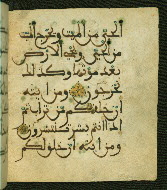 الحي من الميت ويخرج الميت
من الحي ويحي الارض
بعد موتها وكذلك
تخرجون ومن ايته
ان خلقكم من تراب ثم
اذا انتم بشر تنتشرون
ومن ايته ان خلق لكم